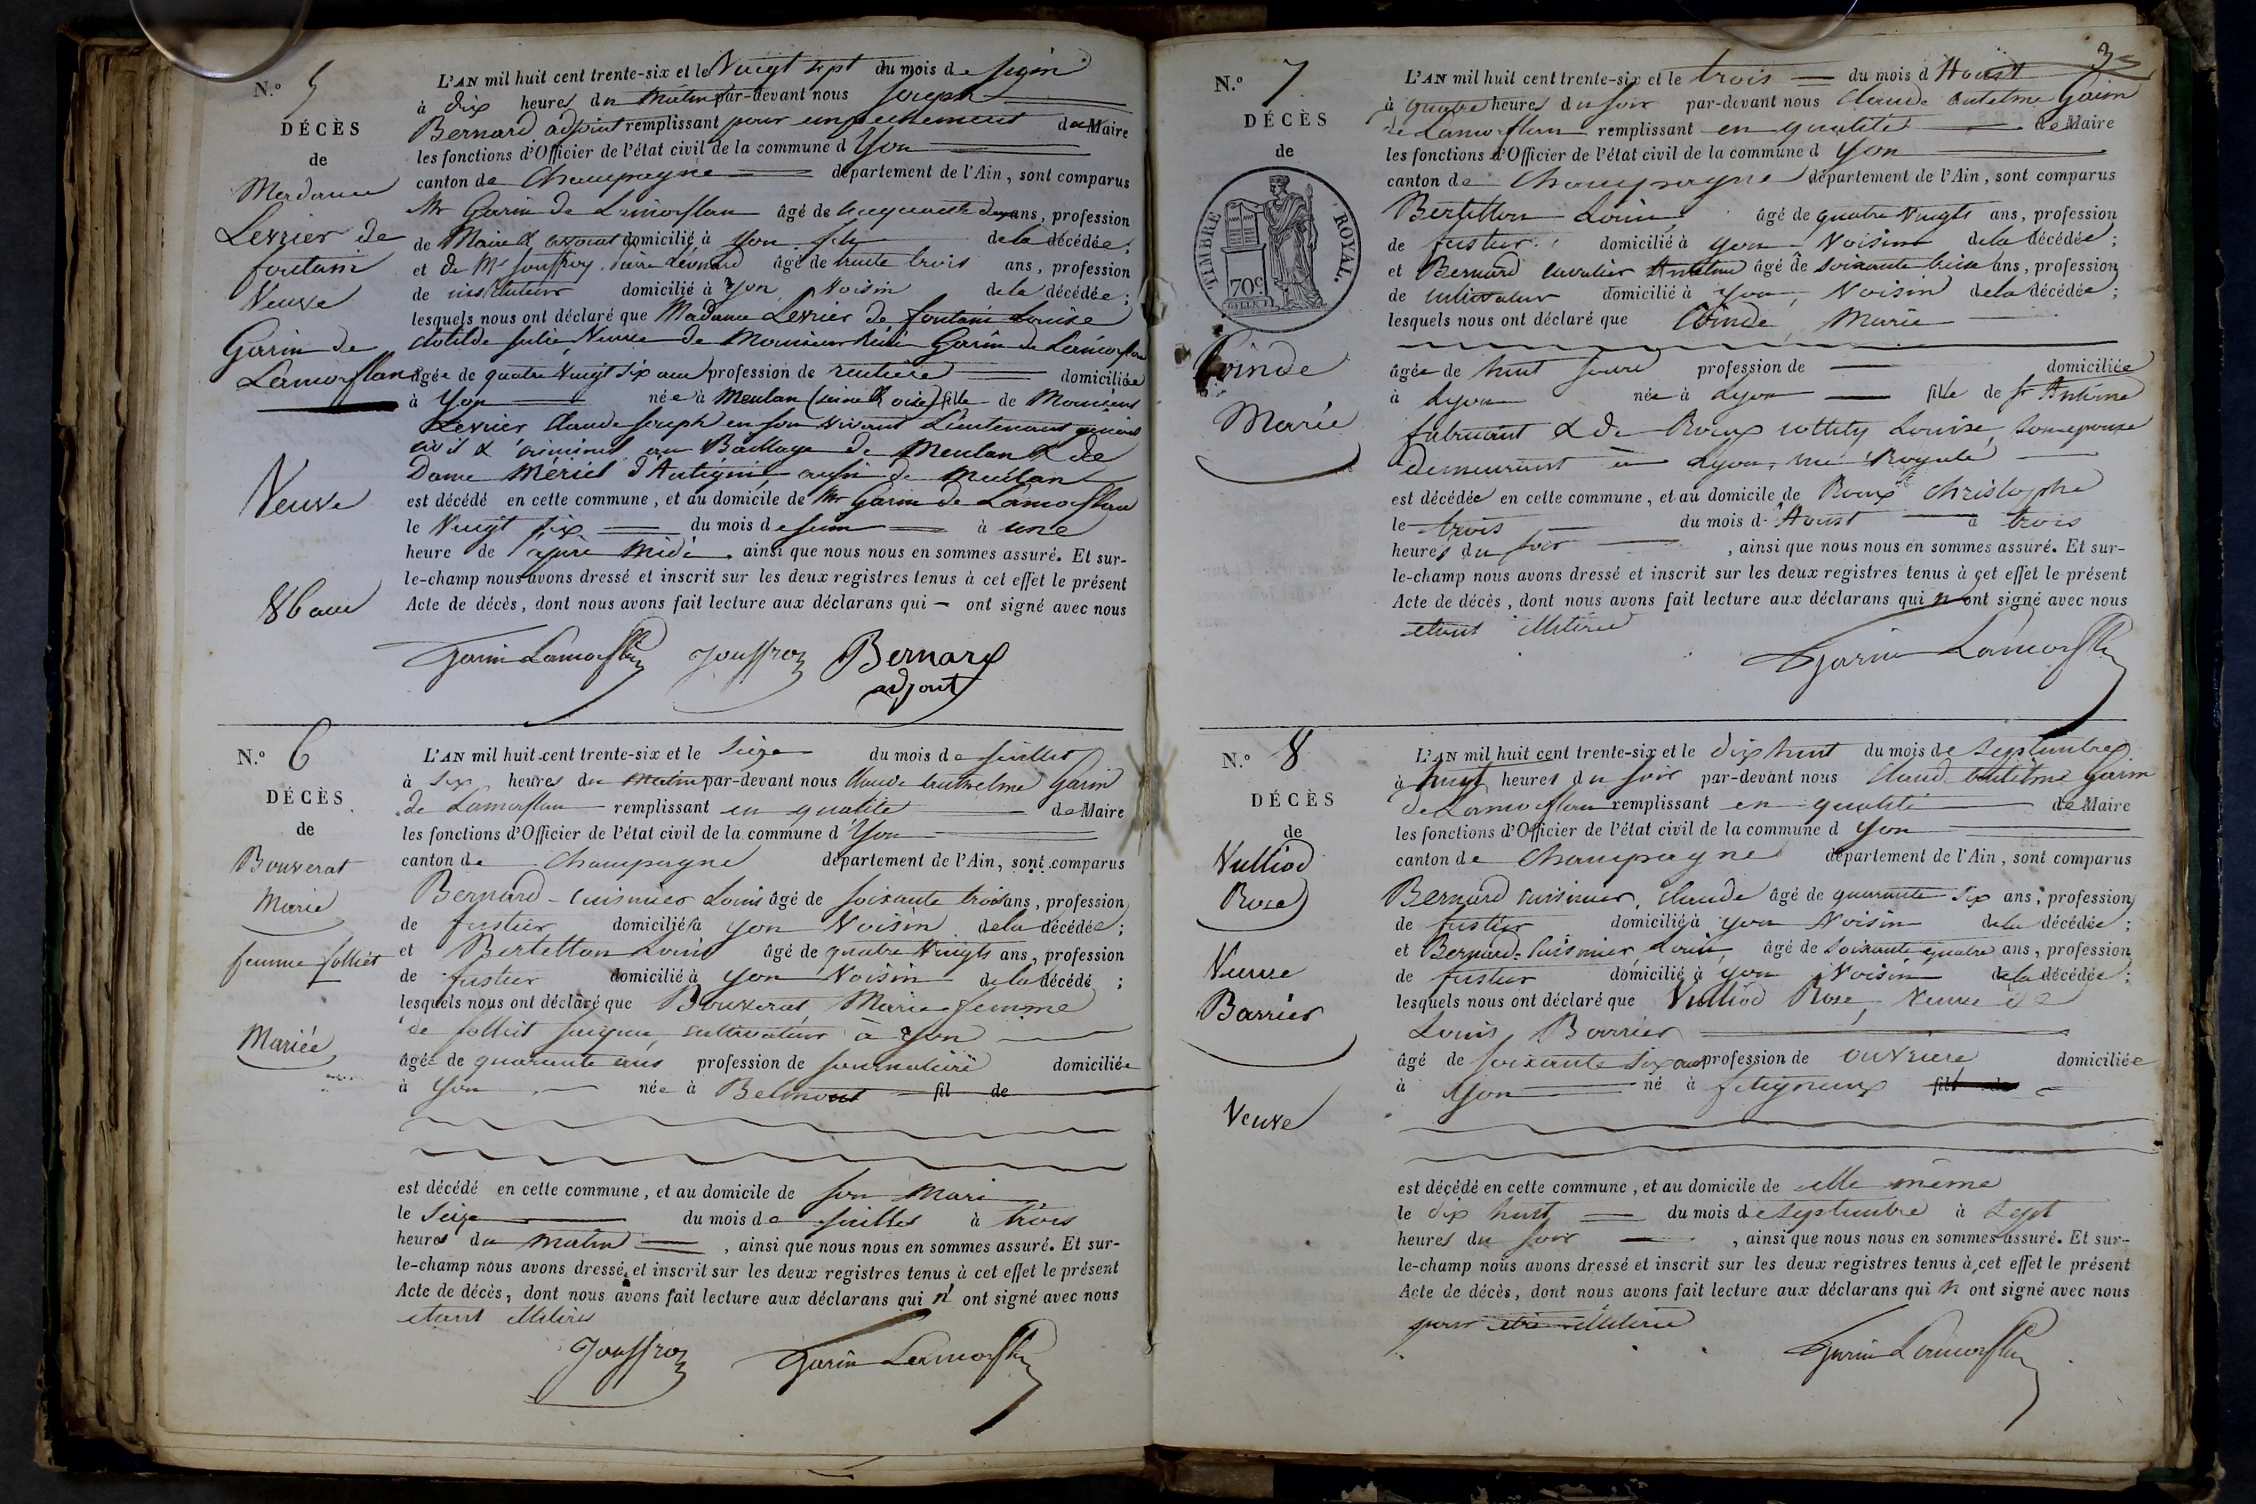 N.º 5
DÉCÈS
de
Madame
Levrier de
fontam
Veuve
Garin de
Lamorflan
Veuve
86 ans
L'AN mil huit cent trente-six et le Vingt sept du mois de
à dix heures du matin par-devant nous joseph
Bernard adjoint remplissant pour empechement du Maire
les fonctions d'Officier de l'état civil de la commune d Yon
canton de Champagne département de l'Ain, sont comparus
Mr Garin de Lamorflan âgé de cinquante ans, profession
de Maire & avocat domicilié à Yon fils de la décédée;
et de Mr Jouffroy Léonard âgé de trente trois ans, profession
de instituteur domicilié à Yon Voisin de la décédée;
lesquels nous ont déclaré que Madame Levrier de fontam Louise
clotilde julie Veuve de Monsieur Garin de Lamorflan
agée de quatre Vingt six ans profession de rentière domiciliée
à Yon née à Meulan (seine & oise) fille de Monsieur
Levrier Claude joseph en son vivant Lieutenant général
civil & criminel au Baillage de Meulan & de
Dame Mériel d'Autigni aussi de Meulan
est décédé en cette commune, et au domicile de Mr Garin de Lamorflan
le Vingt six du mois de juin à une
heure de après Midi, ainsi que nous nous en sommes assuré. Et sur-
le-champ nous avons dressé et inscrit sur les deux registres tenus à cet effet le présent
Acte de décès, dont nous avons fait lecture aux déclarans qui — ont signé avec nous
Garin Lamorflan Jouffroy Bernard
adjoint
N.º 6
DÉCÈS
de
Bouverat
Marie
femme folliet
Mariée
L'AN mil huit cent trente-six et le Seize du mois de juillet
à six heures du matin par-devant nous Claude anthelme Garin
de Lamorflan remplissant en qualité de Maire
les fonctions d'Officier de l'état civil de la commune d Yon
canton de Champagne département de l'Ain, sont comparus
Bernard-Cuisinier Louis âgé de soixante trois ans, profession
de fustier domicilié à yon Voisin de la décédée;
et Bertetton Louis âgé de quatre Vingts ans, profession
de fustier domicilié à yon Voisin de la décédé;
lesquels nous ont déclaré que Bouverat Marie femme
de folliet jacques, cultivateur à Yon
âgée de quarante ans profession de journalière domiciliée
à Yon née à Belmont fil de
est décédé en cette commune, et au domicile de son mari
le Seize du mois de juillet à trois
heures du matin, ainsi que nous nous en sommes assuré. Et sur-
le-champ nous avons dressé et inscrit sur les deux registres tenus à cet effet le présent
Acte de décès, dont nous avons fait lecture aux déclarans qui n' ont signé avec nous
etant illitérés
Jouffroy Garin Lamorflan
35
N.º 7
DÉCÈS
de
TIMBRE ROYAL.
70c
Coinde
Marie
L'AN mil huit cent trente-six et le trois du mois d'Aoust
à quatre heures du soir par-devant nous Claude antelme Garin
de Lamorflan remplissant en qualité de Maire
les fonctions d'Officier de l'état civil de la commune d Yon
canton de Champagne département de l'Ain, sont comparus
Bertetton Louis âgé de quatre Vingts ans, profession
de fustier domicilié à yon Voisin de la décédée;
et Bernard Cavalier Antelme âgé de soixante treize ans, profession
de cultivateur domicilié à Yon, Voisin de la décédée;
lesquels nous ont déclaré que Coinde, Marie
âgée de huit jours profession de domiciliée
à Lyon née à Lyon fille de sr Antoine
fabricant & de Roux Louise, son epouse
demeurant à Lyon, rue Royale
est décédée en cette commune, et au domicile de Roux Christophe
le trois du mois d'Aoust à trois
heures du soir, ainsi que nous nous en sommes assuré. Et sur-
le-champ nous avons dressé et inscrit sur les deux registres tenus à cet effet le présent
Acte de décès, dont nous avons fait lecture aux déclarans qui n ont signé avec nous
etant illitérés
Garin Lamorflan
N.º 8
DÉCÈS
de
Vulliod
Rose
Veuve
Barrier
Veuve
L'AN mil huit cent trente-six et le dix huit du mois de septembre
à huit heures du soir par-devant nous Claude antelme Garin
de Lamorflan remplissant en qualité de Maire
les fonctions d'Officier de l'état civil de la commune d Yon
canton de Champagne département de l'Ain, sont comparus
Bernard cuisinier, Claude âgé de quarante six ans, profession
de fustier domicilié à yon Voisin de la décédée;
et Bernard-Cuisinier, Louis, âgé de soixante quatre ans, profession
de fustier domicilié à yon Voisin de la décédée;
lesquels nous ont déclaré que Vulliod Rose, Veuve de
Louis Barrier
âgé de soixante six ans profession de ouvriere domiciliée
à Yon né à fitignieux fil de
est décédé en cette commune, et au domicile de elle même
le dix huit du mois de septembre à sept
heures du soir, ainsi que nous nous en sommes assuré. Et sur-
le-champ nous avons dressé et inscrit sur les deux registres tenus à cet effet le présent
Acte de décès, dont nous avons fait lecture aux déclarans qui n ont signé avec nous
pour etre illitérés
Garin Lamorflan